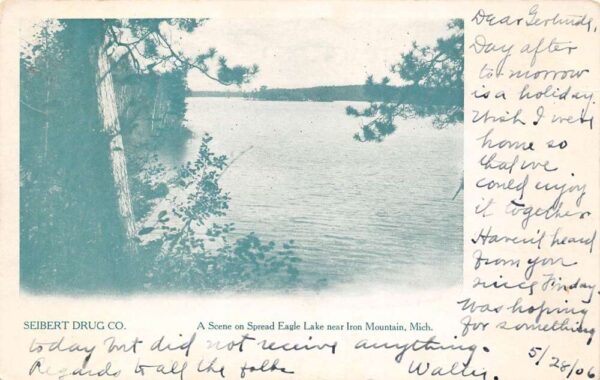 Dear Gertrude,
Day after
to-morrow
is a holiday.
Wish I were
home so
that we
could enjoy
it together
Haven't heard
from you
since Friday.
Was hoping
for something
SEIBERT DRUG CO.
A Scene on Spread Eagle Lake near Iron Mountain, Mich.
today but did not receive anything.
Regards to all the folks
Walter
5/28/06